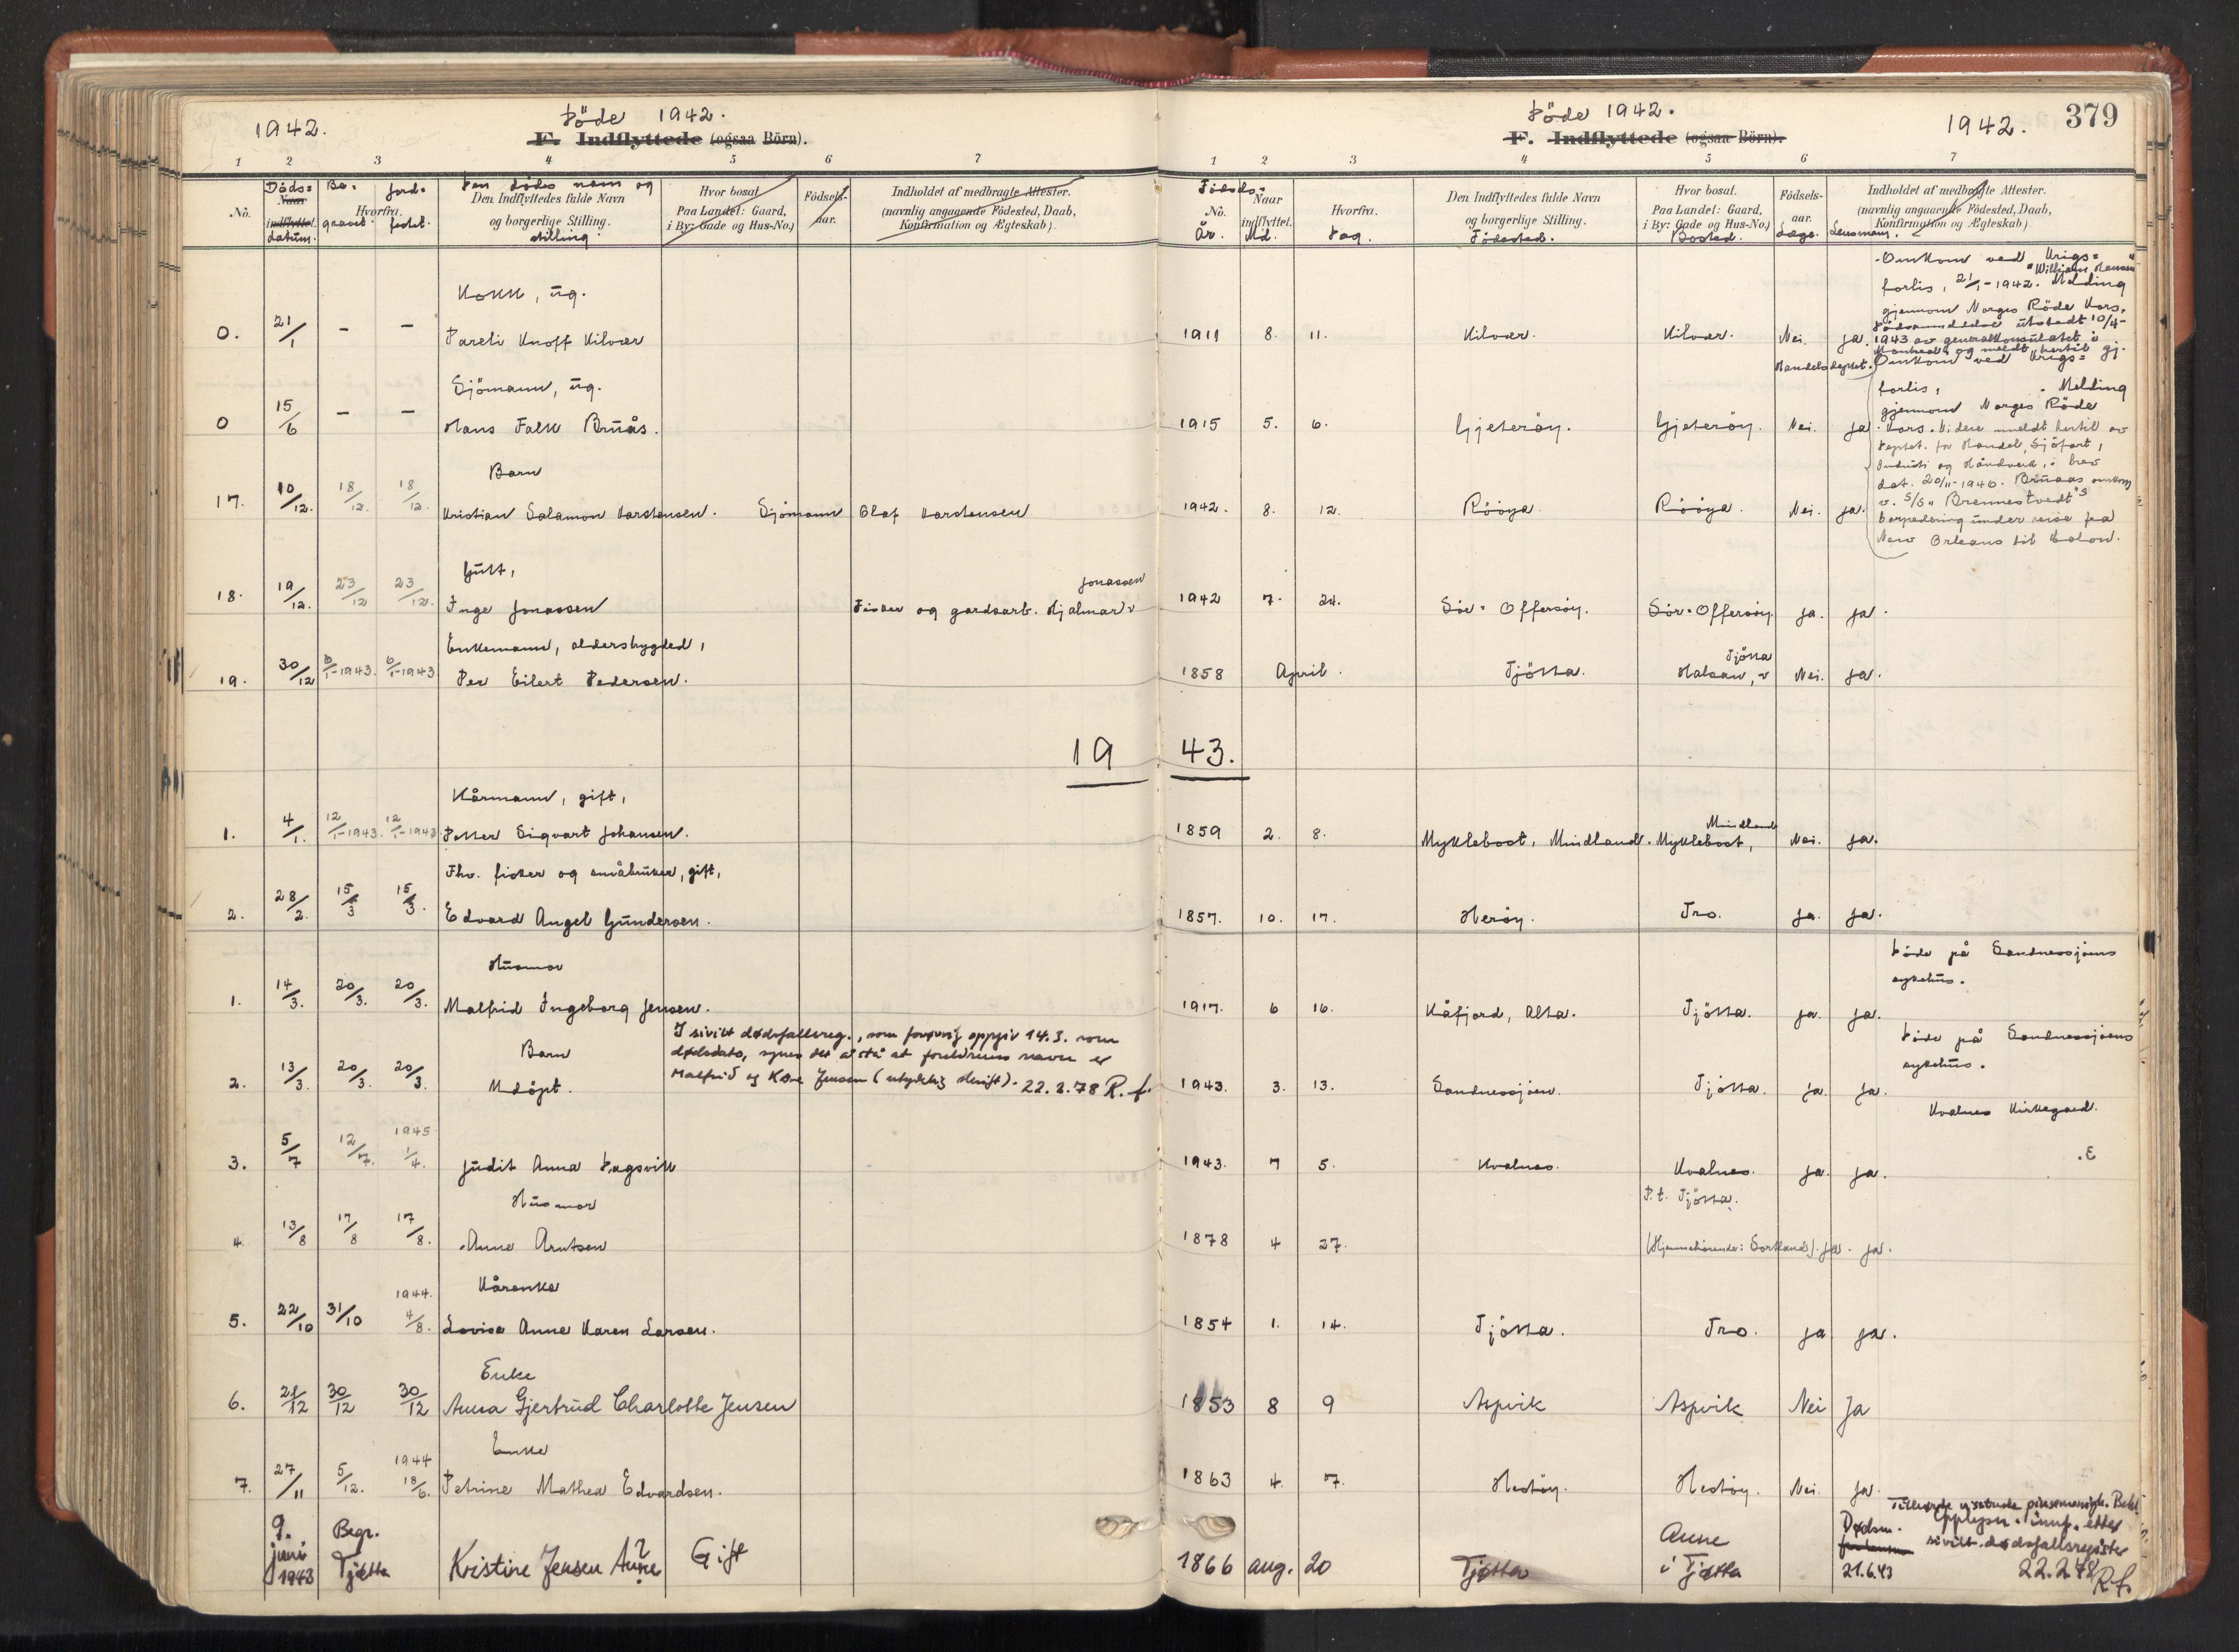 1942.
Döde 1942.
F. Indflyttede (ogsaa Börn).
1 2 3 4 5 6 7
No.
Döds=
Naar
indflyttet.
datum.
Be.
gravet.
Hvorfra.
Jord.
festet.
Den dödes navn og
Den Indflyttedes fulde Navn
og borgerlige Stilling.
stilling
Hvor bosat
Paa Landet: Gaard,
i By: Gade og Hus-No.)
Födsels-
aar.
Indholdet af medbragte Attester.
(navnlig angaaende Födested, Daab,
Konfirmation og Ægteskab)
Kokk, üg.
0. 21/1 – – Pareli Knoff Kilvær
Sjömann, üg.
0 15/6 – – Hans Falk Brüås.
Barn
17. 10/12. 18/12. 18/12. Kristian Salamon Karstensen. Sjömann Olaf Karstensen
Gütt,
Jonassen
18. 19/12. 23/12 23/12. Inge Jonassen Fisker og gardsarb. Hjalmar
Enkemann, alderstrygded,
19. 30/12 6/1-1943. 6/1-1943 Per Eilert Pedersen.
19
Kårmann, gift,
1. 4/1. 12/1-1943. 12/1-1943. Petter Sigvart Johansen.
Fhv. fisker og småbrüker, gift,
2. 28/2. 15/3 15/3. Edvard Angel Gündersen.
Hüsmor
1. 14/3. 20/3. 20/3. Malfrid Ingeborg Jensen.
I sivilt dødsfallsreg., som forøvrig oppgiv 14.3. som
dødsdato, synes det å stå at foreldrenes navn er
Malfrid og Kåre Jensen (utydelig skrift). 22.2.78 R.f.
Barn
2. 13/3. 20/3. 20/3. Udöpt.
1945
3. 5/7 12/7. 1/4. Jüdit Anna Dagsvik
Hüsmor
4. 13/8 17/8 17/8. Anne Arntsen
Kårenke
1944.
5. 22/10 31/10 4/8. Lovise Anne Karen Larsen.
Enke
6. 21/12 30/12 30/12 Anna Gjertrud Charlotte Jensen
Enke
1944
7. 27/11 5/12. 18/6. Petrine Mathea Edvardsen.
9.
juni
1943
Begr.
Tjøtta
Kristine Jensen Aune ? Gift
Döde 1942.
1942.
379
F. Indflyttede (ogsaa Börn).
1 2 3 4 5 6 7
Födsels-
No.
År.
Naar
indflyttet.
Md.
Hvorfra.
Dag.
Den Indflyttedes fulde Navn
og borgerlige Stilling.
Födested.
Hvor bosat.
Paa Landet: Gaard,
i By: Gade og Hus-No.)
Bosted.
Födsels-
aar.
Læge.
Lensmann.
Indholdet af medbragte Attester.
(navnlig angaaende Födested, Daab,
Konfirmation og Ægteskab)
Omkom ved Krigs=
"William Hansen"
forlis, 21/1-1942. Melding
gjennom Norges Röde Kors.
Dödsanmeldelse ütstedt 10/4-
1911 8. 11. Kilvær. Kilvær. Nei. ja. 1943 av generalkonsülatet i
Montreal og meldt hertil gj.
Handelsdeptet. Omkom ved Krigs=
forlis, . Melding
gjennom Norges Röde
1915 5. 6. Gjeteröy. Gjeteröy. Nei. ja. Kors. Videre meldt hertil av
Deptet. for Handel, Sjöfart,
Indüstri og Håndverk, i brev
dat. 20/11-1946. Brüaas omkom
1942. 8. 12. Rööya. Rööya. Nei. ja. v. S/S "Brennestvedt"s
torpedering ünder reise fra
New Orleans til Colon.
1942 7. 24. Sör-Offersöy. Sör-Offersöy. ja. ja.
Tjötta
1858 April. Tjötta. Halsan, Nei. ja.
43.
Mindland
1859 2. 8. Myklebost, Mindland. Myklebost, Nei. ja.
1857. 10. 17. Heröy. Tro. ja. ja.
Döde på Sandnessjöens
sykehüs.
1917. 6 16. Kåfjord, Alta. Tjötta. ja. ja.
Döde på Sandnessjöens
sykehüs.
1943. 3. 13. Sandnessjöen. Tjötta. ja. ja.
Kvalnes Kirkegaard.
1943. 7 5. Kvalnes. Kvalnes. ja. ja.
P.t. Tjötta.
1878 4 27. (Hjemmehörende: Sortland). ja. ja.
1854 1. 14. Tjötta. Tro. ja ja.
1853 8 9 Aspvik Aspvik Nei Ja
1863 4. 7. Hestöy. Hestöy. Nei. ja.
Opplysn. innf. etter
sivilt dødsfallsregister
22.2.78 R.f.
1866 aug. 20 Tjøtta Aune
i Tjøtta
Dødsm.
21.6.43